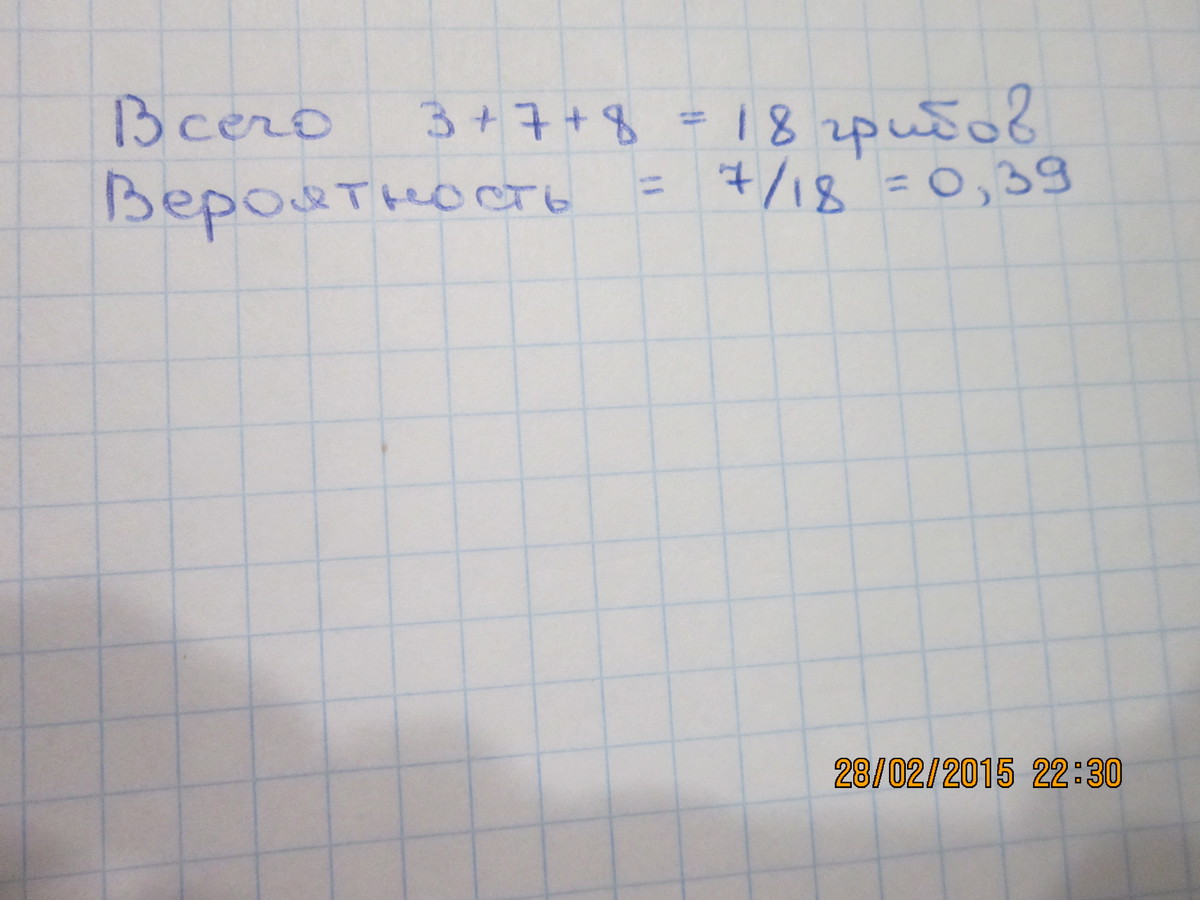 Всего 3+7+8 = 18 грибов
Вероятность = 7/18 = 0,39
28/02/2015 22:30